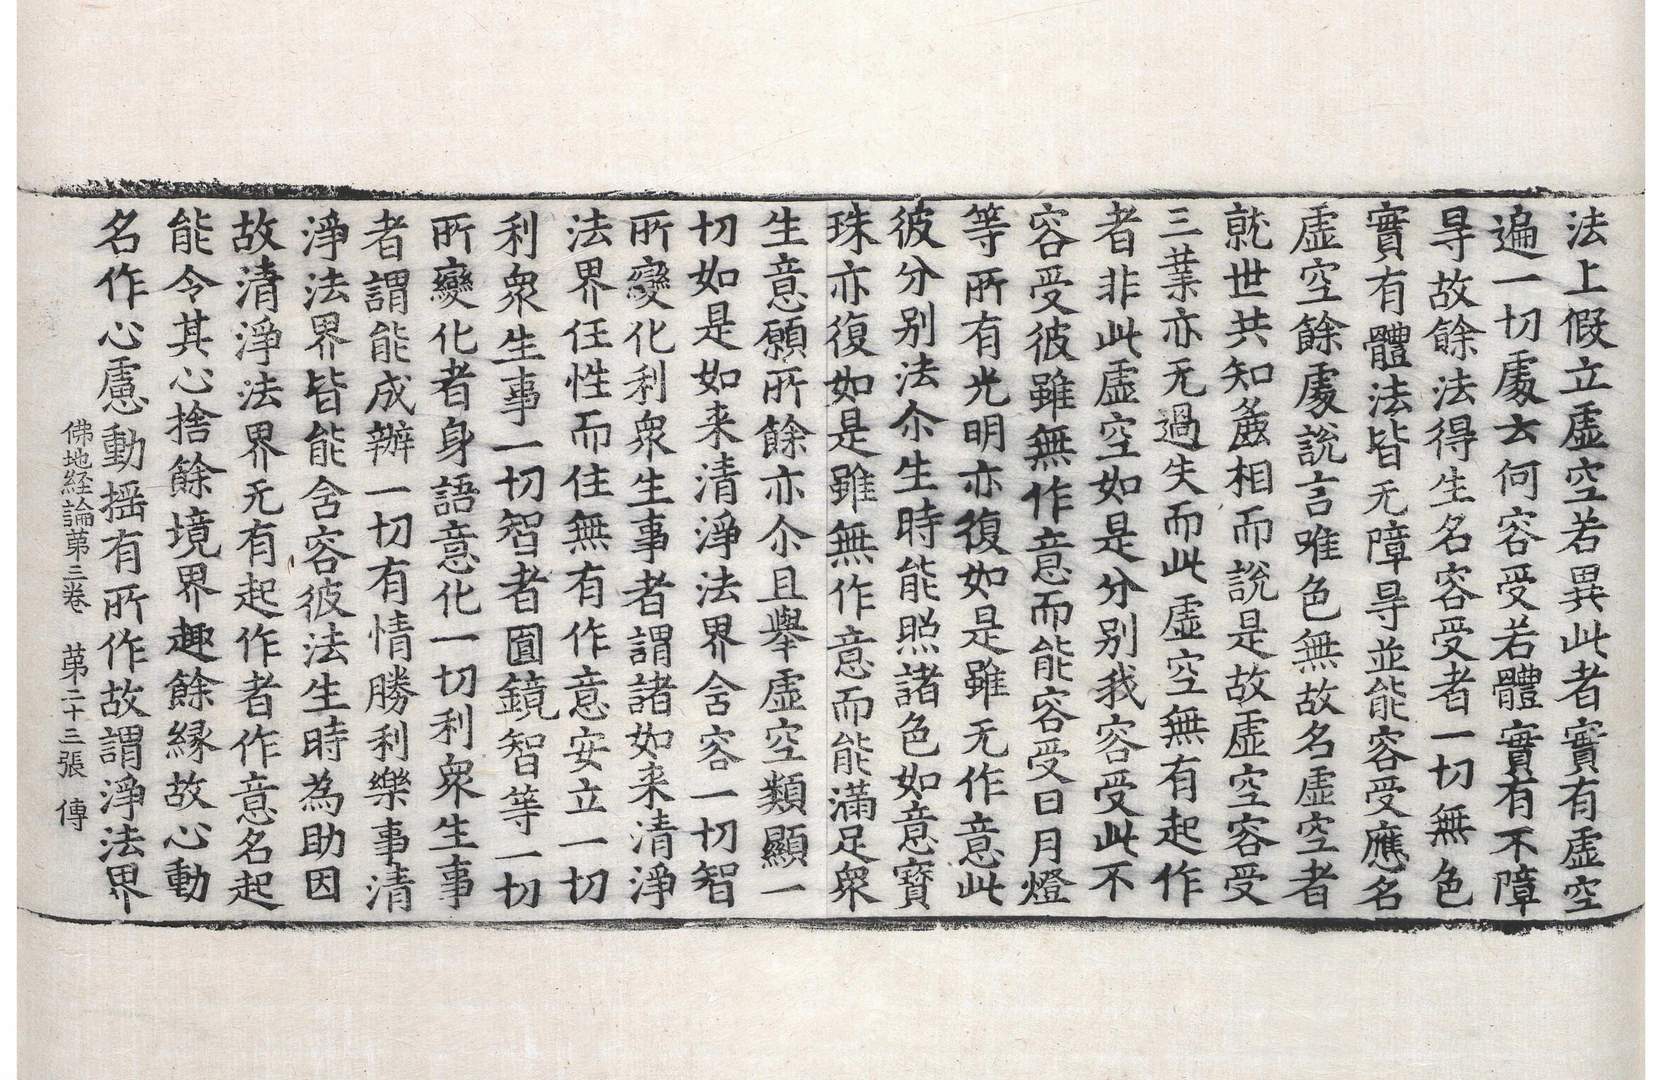 法上假立虛空若異此者實有虛空
遍一切處云何容受若體實有不障
㝵故餘法得生名容受者一切無色
實有體法皆无障㝵並能容受應名
虛空餘處說言唯色無故名虛空者
就世共知麁相而說是故虛空容受
三業亦无過失而此虛空無有起作
者非此虛空如是分別我容受此不
容受彼雖無作意而能容受日月燈
等所有光明亦復如是雖无作意此
彼分别法尒生時能照諸色如意寶
珠亦復如是雖無作意而能滿足衆
生意願所餘亦尒且舉虛空類顯一
切如是如来清淨法界含容一切智
所變化利衆生事者謂諸如来清淨
法界任性而住無有作意安立一切
利衆生事一切智者圓鏡智等一切
所變化者身語意化一切利衆生事
者謂能成辦一切有情勝利樂事清
淨法界皆能含容彼法生時為助因
故清淨法界无有起作者作意名起
能令其心捨餘境界趣餘緣故心動
名作心慮動揺有所作故謂淨法界
佛地経論苐三卷　苐二十三張　傳